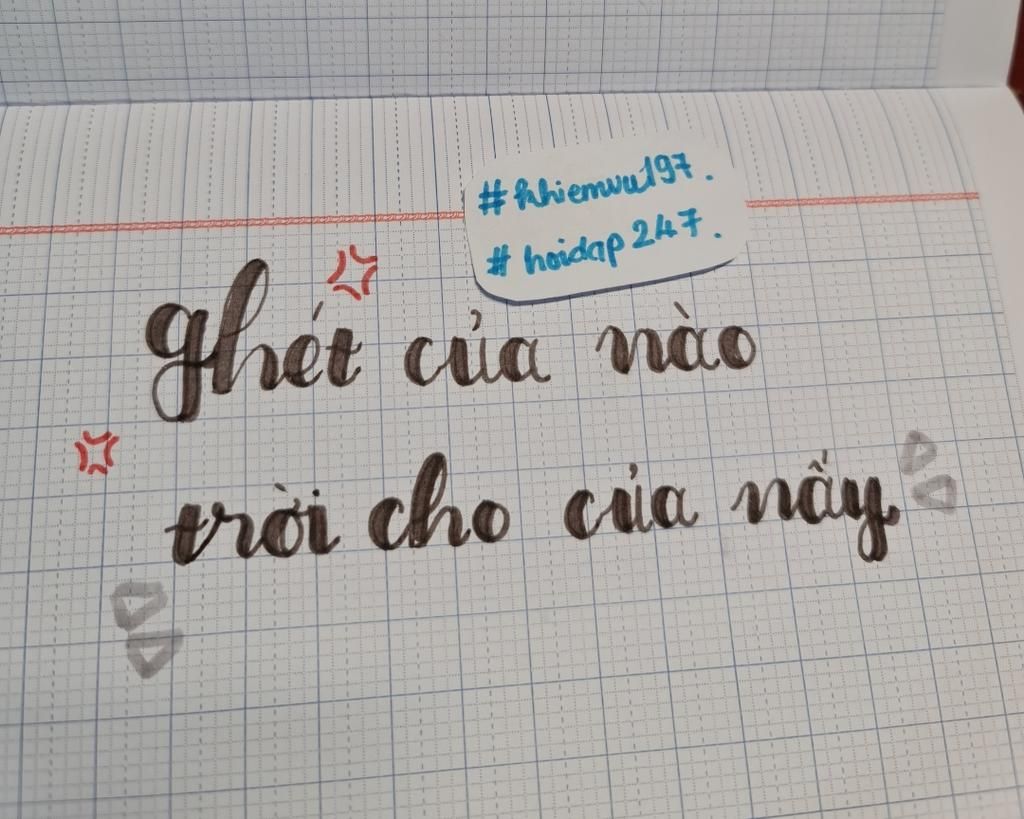 #nhiemvu197.
#hoidap247.
ghét của nào
trời cho của nấy